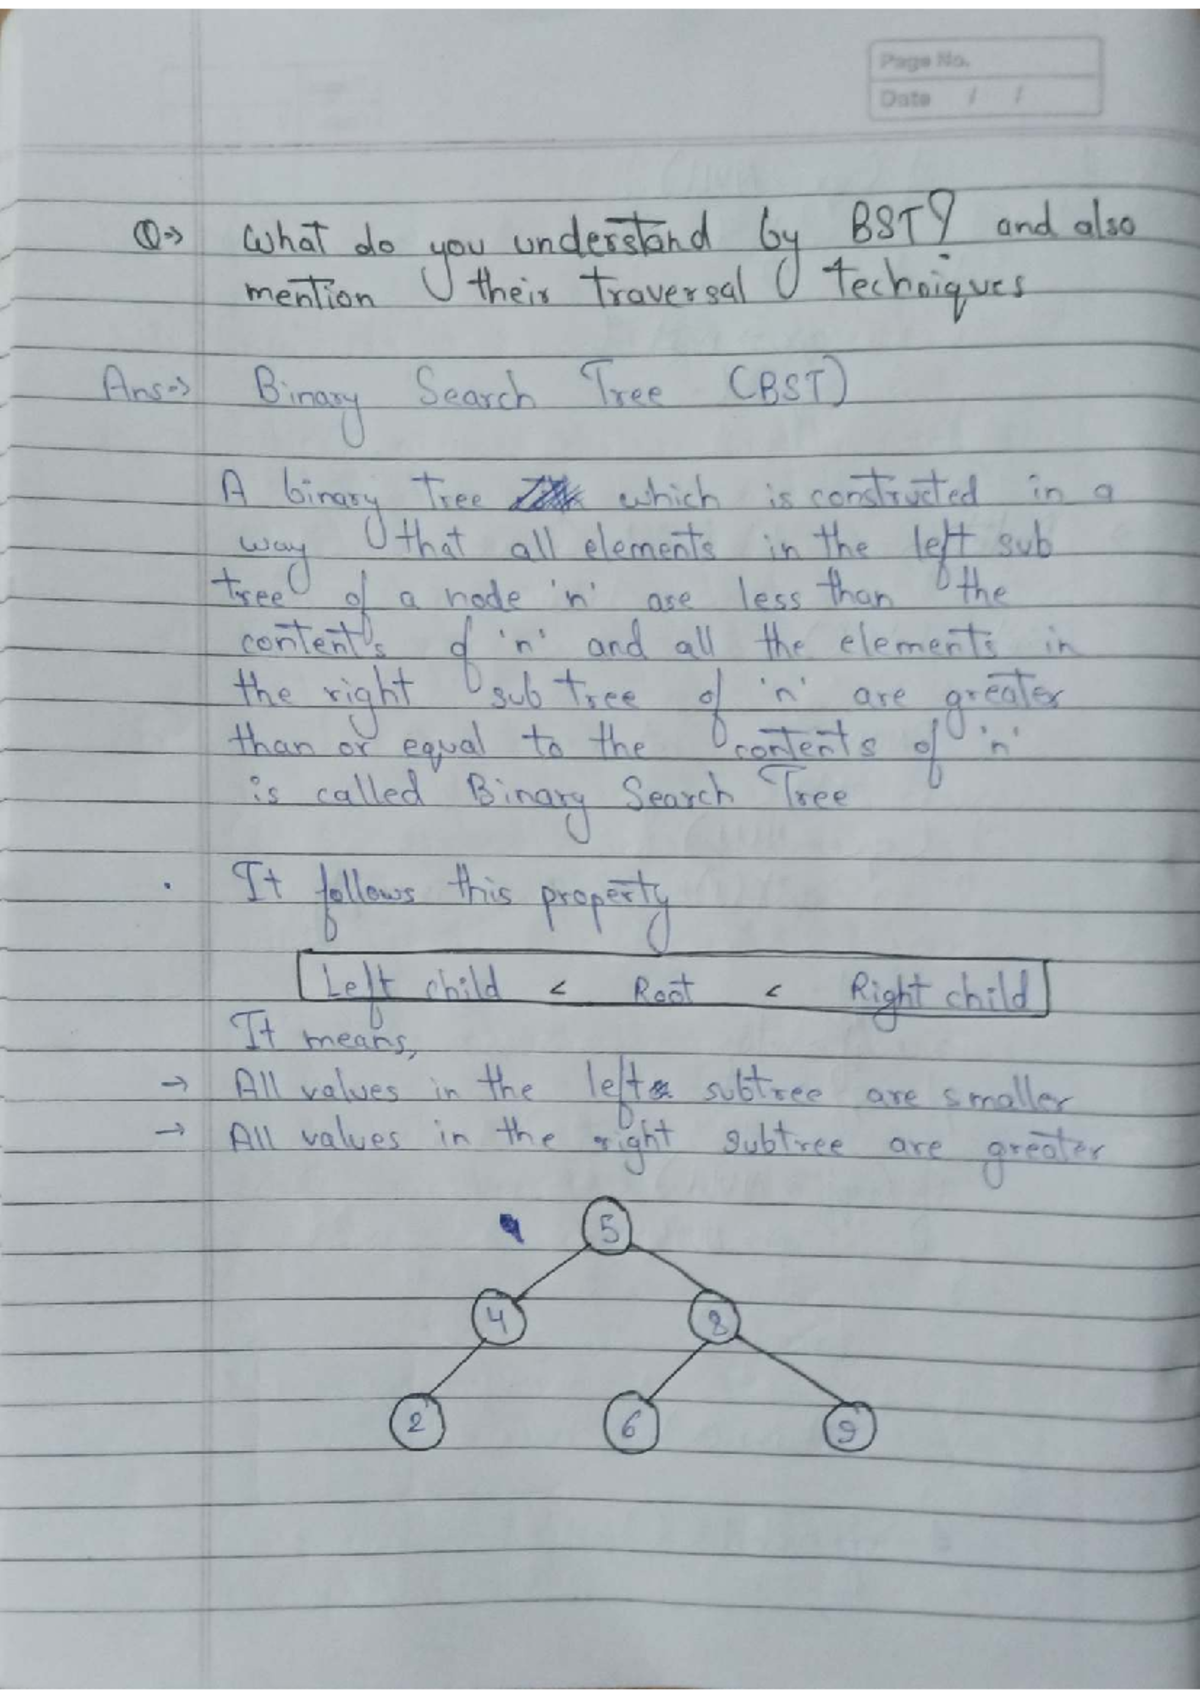 Page No.
Date / /
Q→ What do you understand by BST? and also
mention their traversal techniques
Ans→ Binary Search Tree (BST)
A binary tree which is constructed in a
way that all elements in the left sub
tree of a node 'n' are less than the
contents of 'n' and all the elements in
the right sub tree of 'n' are greater
than or equal to the contents of 'n'
is called Binary Search Tree
. It follows this property
Left child < Root < Right child
It means,
→ All values in the left subtree are smaller
→ All values in the right subtree are greater
5
4 8
2 6 9